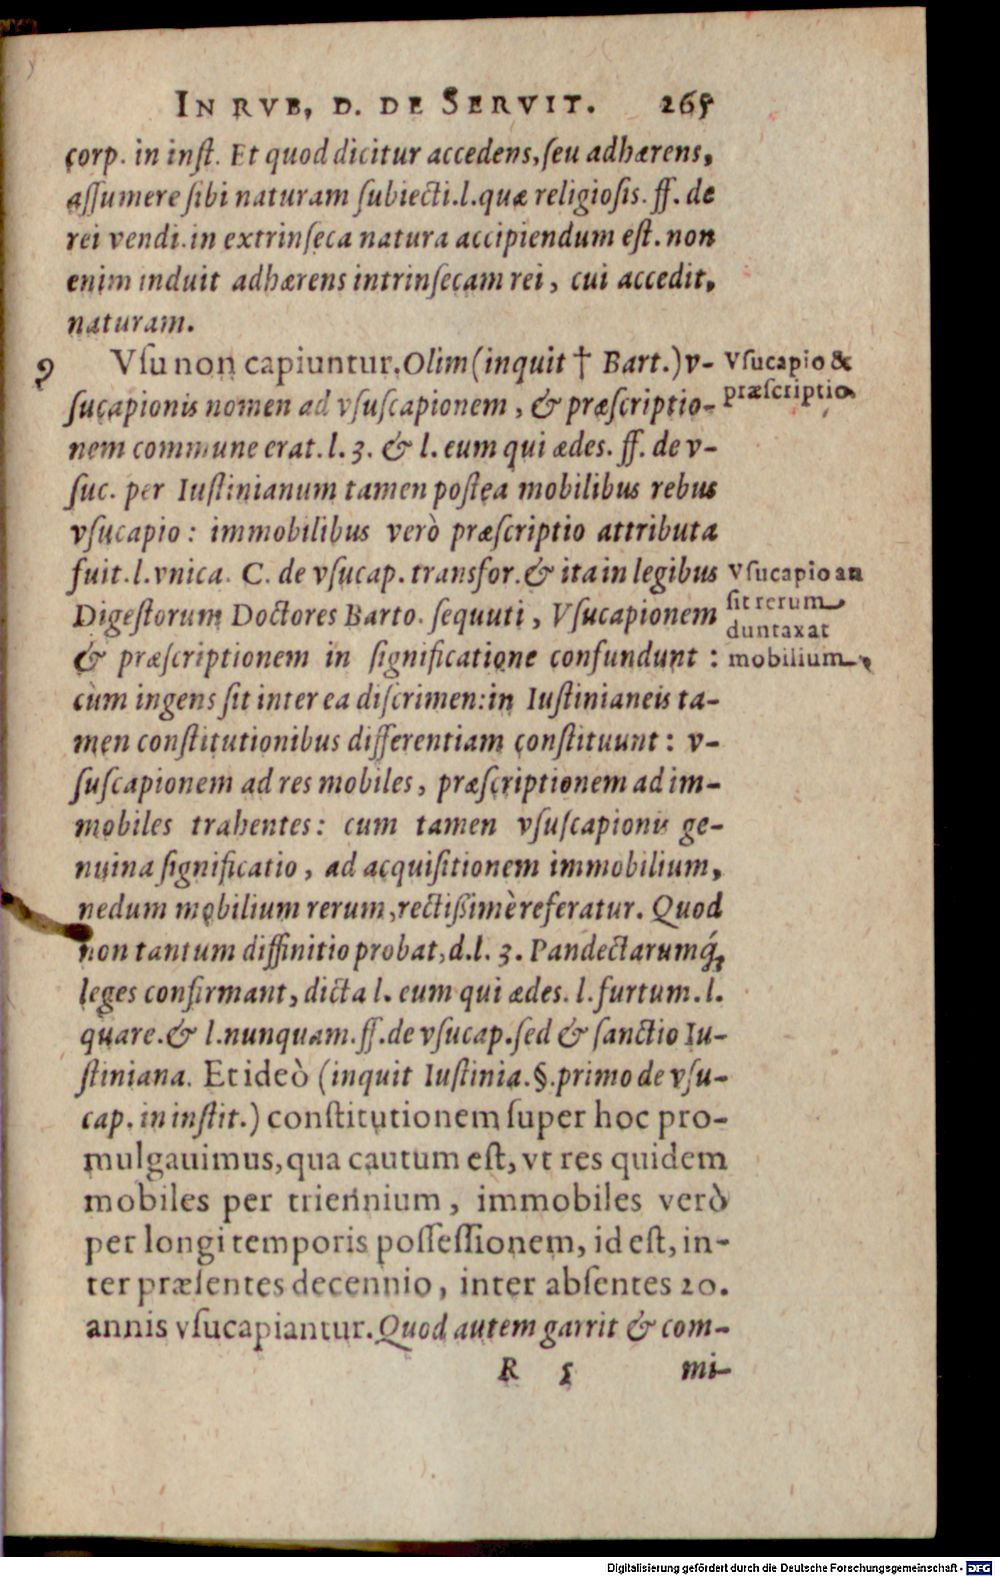 IN RVB, D. DE SERVIT. 265
corp. in inſt. Et quod dicitur accedens, ſeu adhærens,
aſſumere ſibi naturam ſubiecti. l. quæ religioſis. ff. de
rei vendi. in extrinſeca natura accipiendum eſt. non
enim induit adhærens intrinſecam rei, cui accedit,
naturam.
9 Vſu non capiuntur. Olim (inquit † Bart.) v-
ſucapionis nomen ad vſuſcapionem, & præſcriptio-
nem commune erat. l. 3. & l. eum qui ædes. ff. de v-
ſuc. per Iuſtinianum tamen poſtea mobilibus rebus
vſucapio: immobilibus verò præſcriptio attributa
fuit. l. vnica. C. de vſucap. transfor. & ita in legibus
Digeſtorum Doctores Barto. ſequuti, Vſucapionem
& præſcriptionem in ſignificatione confundunt:
cùm ingens ſit inter ea diſcrimen: in Iuſtinianeis ta-
men conſtitutionibus differentiam conſtituunt: v-
ſuſcapionem ad res mobiles, præſcriptionem ad im-
mobiles trahentes: cum tamen vſuſcapionis ge-
nuina ſignificatio, ad acquiſitionem immobilium,
nedum mobilium rerum, rectiſſimè referatur. Quod
non tantum diffinitio probat, d. l. 3. Pandectarumq́;
leges confirmant, dicta l. eum qui ædes. l. furtum. l.
quare. & l. nunquam. ff. de vſucap. ſed & ſanctio Iu-
ſtiniana. Et ideò (inquit Iuſtinia. §. primo de vſu-
cap. in inſtit.) conſtitutionem ſuper hoc pro-
mulgauimus, qua cautum eſt, vt res quidem
mobiles per triennium, immobiles verò
per longi temporis poſſeſſionem, id eſt, in-
ter præſentes decennio, inter abſentes 20.
annis vſucapiantur. Quod autem garrit & com-
R 5 mi-
Vſucapio &
præſcriptio.
Vſucapio an
ſit rerum
duntaxat
mobilium.
Digitalisierung gefördert durch die Deutsche Forschungsgemeinschaft - DFG